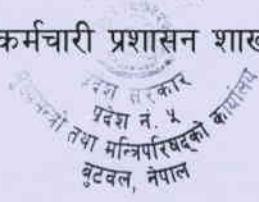 कर्मचारी प्रशासन शाख
प्रदेश सरकार
प्रदेश नं. ५
मुख्यमन्त्री तथा मन्त्रिपरिषद्को कार्यालय
बुटवल, नेपाल